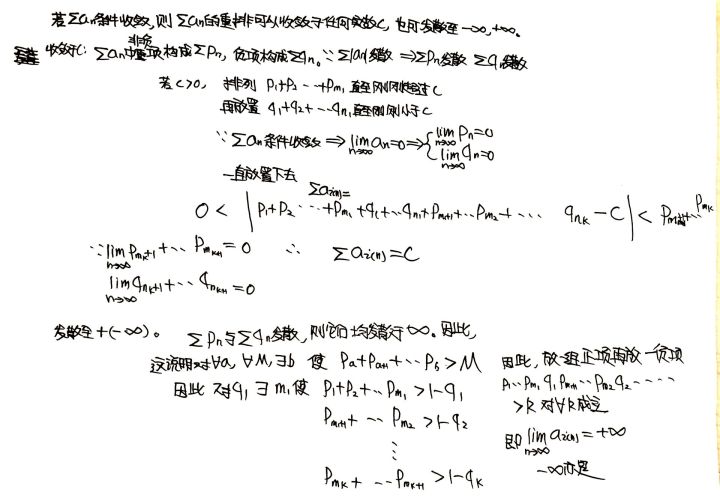 若Σan条件收敛,则Σan的重排可以收敛于任何实数c,也可发散至-∞,+∞。
收敛于c: Σan中非负项构成Σpn,负项构成Σqn. ∵Σ|an|发散 ⟹Σpn发散 Σqn发散
若c>0, 排列 p1+p2 ... +pm1,直至刚刚超过c
再放置 q1+q2+...qn1,直至刚刚小于c
∵Σan条件收敛 ⟹ lim n→∞ an=0 ⟹ { lim n→∞ pn=0
lim n→∞ qn=0
一直放置下去
Σaz(n)=
0 < | p1+p2 ... +pm1+q1+...qn1+pm1+1+...pm2+... qnk - c | < pmk+1+...pmk
∵ lim n→∞ pmk+1+... pmk+1=0 ∴ Σaz(n)=c
lim n→∞ qnk+1+...qnk+1=0
发散至+(-∞)。 Σpn与Σqn发散,则它们均发散于∞。因此,
这说明对∀a, ∀M,∃b 使 pa+pa+1+...pb>M
因此 对q1 ∃m1使 p1+p2+...pm1>1-q1
pm1+1+...pm2>1-q2
⋮
pmk+...pmk+1>1-qk
因此,放一组正项再放一负项
p1...pm1 q1 pm1+1...pm2 q2....
>k 对∀k成立
即 lim n→∞ az(n)=+∞
-∞亦是